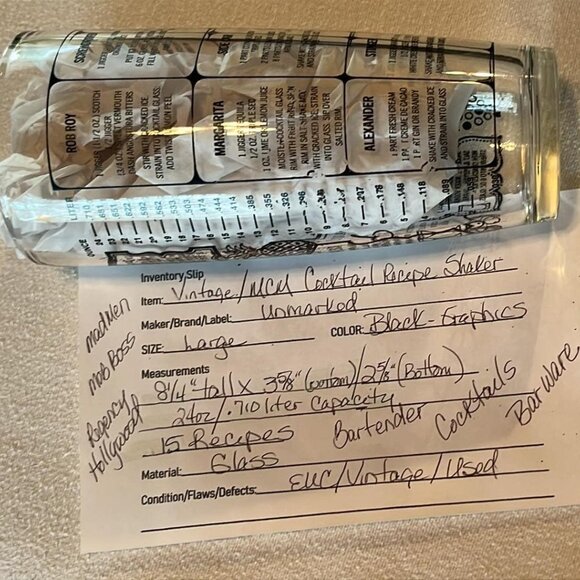 SIDECAR
ROB ROY
1 JIGGER (1 1/2 OZ.) SCOTCH
1/2 JIGGER
(3/4 OZ.) SWEET VERMOUTH
DASH ANGOSTURA BITTERS
STIR WITH CRACKED ICE
STRAIN INTO COCKTAIL GLASS
ADD TWIST LEMON PEEL
MARGARITA
1 JIGGER TEQUILA
1/2 OZ. TRIPLE SEC
1 OZ. LIME OR LEMON JUICE
MOISTEN COCKTAIL GLASS
RIM WITH FRUIT RIND, SPIN
RIM IN SALT. SHAKE ING.
WITH CRACKED ICE STRAIN
INTO GLASS. SIP OVER
SALTED RIM.
ALEXANDER
1 PART FRESH CREAM
1 PART CREME DE CACAO
1 PART GIN OR BRANDY
SHAKE WITH CRACKED ICE
AND STRAIN INTO GLASS
OUNCE LITER
24 .710
.651
.622
.592
.562
.533
.503
.474
.444
.414
.385
.355
.326
.296
.207
.178
.148
.118
.089
Inventory Slip
Item: Vintage/MCM Cocktail Recipe Shaker
Maker/Brand/Label: Unmarked
SIZE: Large COLOR: Black-Graphics
Measurements
8 1/4" tall x 3 5/8" (bottom)/2 5/8" (Bottom)
24oz/.710 liter Capacity
15 Recipes Bartender Cocktails BarWare
Material: Glass
Condition/Flaws/Defects: EUC/Vintage/Used
Mad Men
Mob Boss
Regency
Hollywood